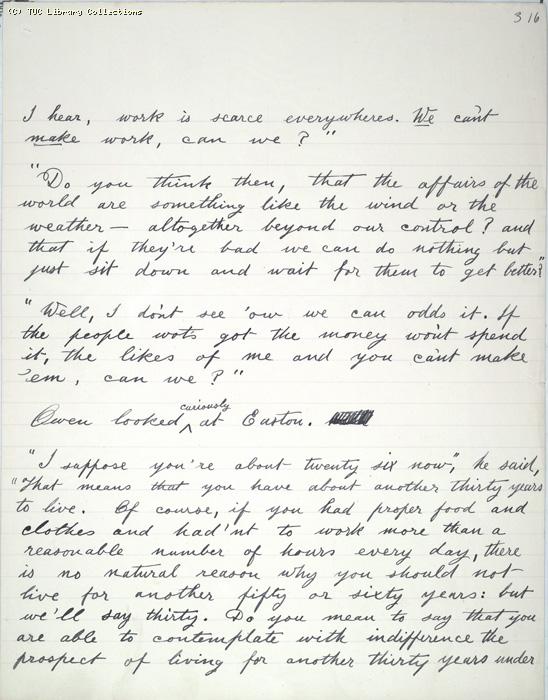 (C) TUC Library Collections
316
I hear, work is scarce everywheres. We can't
make work, can we?"
"Do you think then, that the affairs of the
world are something like the wind or the
weather — altogether beyond our control? and
that if they're bad we can do nothing but
just sit down and wait for them to get better?"
"Well, I don't see 'ow we can odds it. If
the people wots got the money won't spend
it, the likes of me and you can't make
'em, can we?"
Owen looked curiously at Easton.
"I suppose you're about twenty six now", he said,
"That means that you have about another thirty years
to live. Of course, if you had proper food and
clothes and had'nt to work more than a
reasonable number of hours every day, there
is no natural reason why you should not
live for another fifty or sixty years: but
we'll say thirty. Do you mean to say that you
are able to contemplate with indifference the
prospect of living for another thirty years under